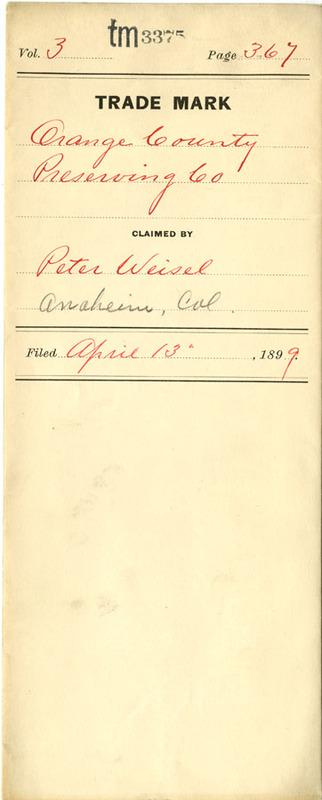 tm 3375
Vol. 3 Page 367
TRADE MARK
Orange County
Preserving Co
CLAIMED BY
Peter Weisel
Anaheim, Cal.
Filed April 13" , 1899.